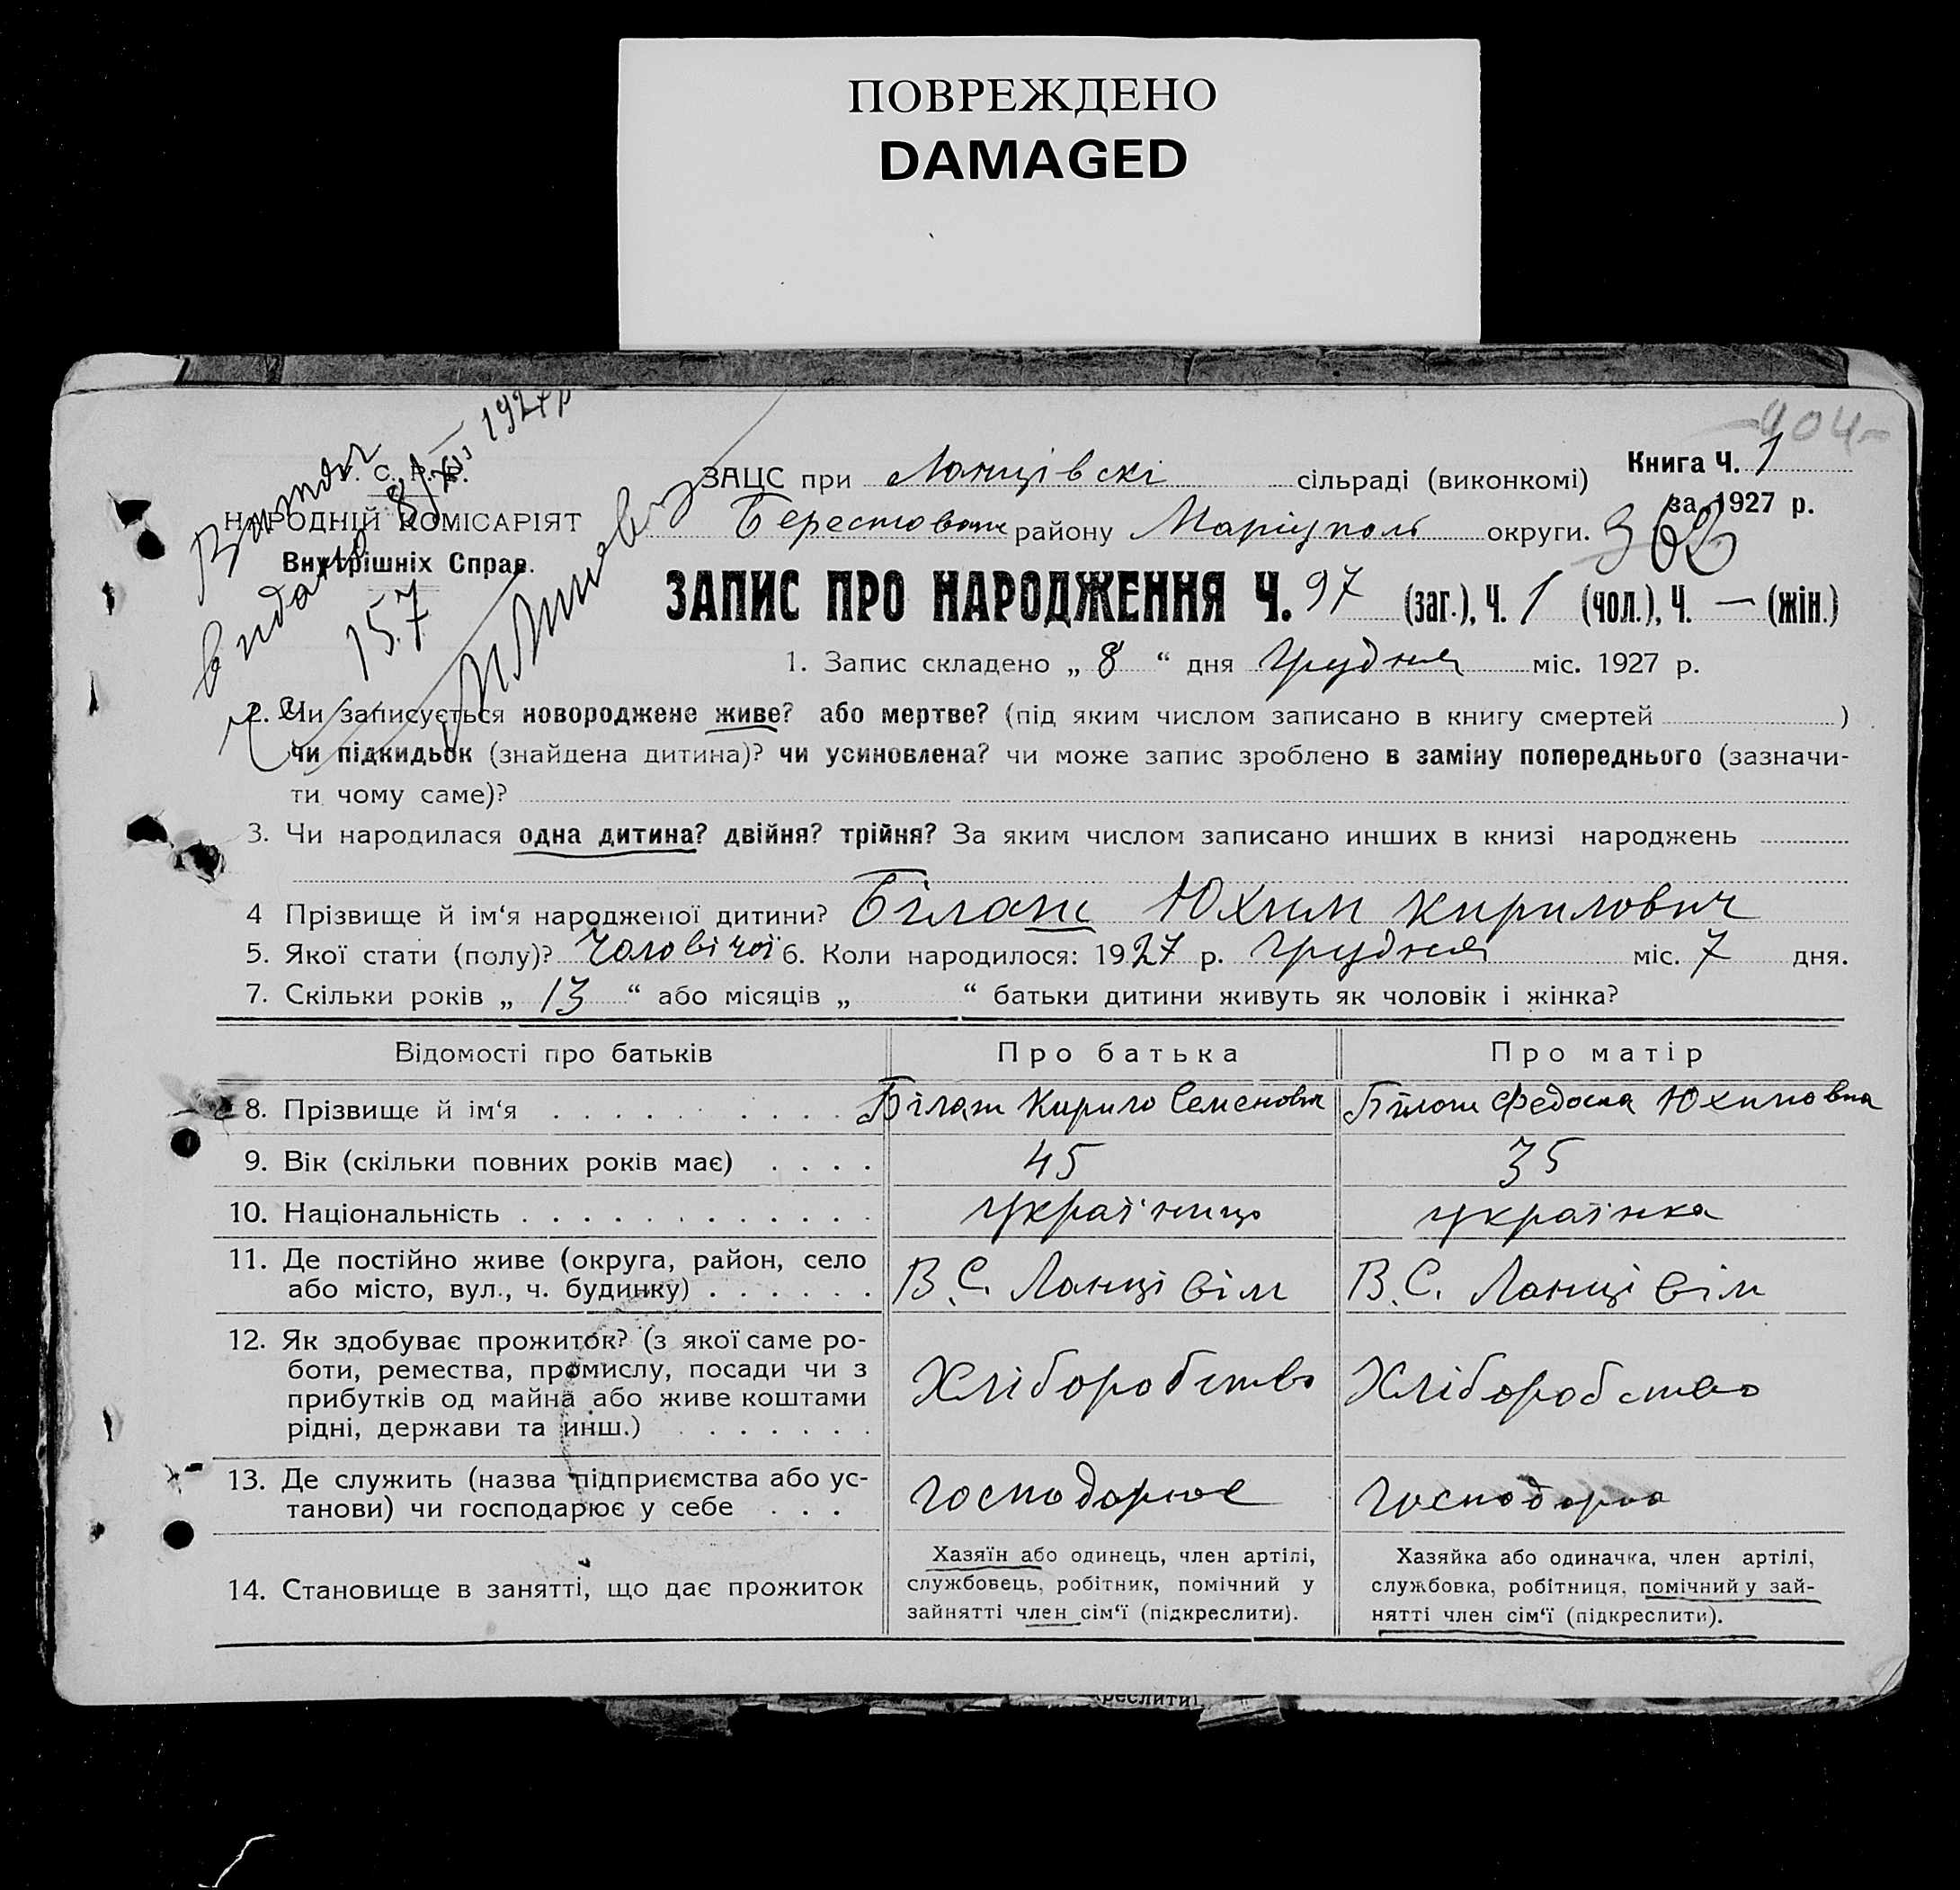 ПОВРЕЖДЕНО
DAMAGED
-404-
8/XII 1927р
У. С. Р. Р.
НАРОДНІЙ КОМІСАРІЯТ
Внутрішніх Справ.
видано
157
ЗАЦС при Ланцівскі сільраді (виконкомі)
Книга Ч. 1
за 1927 р.
Берестован району Маріуполь округи.
362
ЗАПИС ПРО НАРОДЖЕННЯ Ч. 97 (заг.), Ч. 1 (чол.), Ч. — (жін.)
1. Запис складено „ 8 “ дня грудня міс. 1927 р.
2. Чи записується новороджене живе? або мертве? (під яким числом записано в книгу смертей )
чи підкидьок (знайдена дитина)? чи усиновлена? чи може запис зроблено в заміну попереднього (зазначи-
ти чому саме)?
3. Чи народилася одна дитина? двійня? трійня? За яким числом записано инших в книзі народжень
4 Прізвище й ім‘я народженої дитини? Білаш Юхим Кирилович
5. Якої стати (полу)? Чоловічої 6. Коли народилося: 1927 р. грудня міс. 7 дня.
7. Скільки років „ 13 “ або місяців „ “ батьки дитини живуть як чоловік і жінка?
Відомості про батьків
Про батька
Про матір
8. Прізвище й ім‘я
Білаш Кирило Семенович
Білаш Федоска Юхимовна
9. Вік (скільки повних років має)
45
35
10. Національність
українець
українка
11. Де постійно живе (округа, район, село
або місто, вул., ч. будинку)
В. С. Ланці вім
В. С. Ланці вім
12. Як здобуває прожиток? (з якої саме ро-
боти, ремества, промислу, посади чи з
прибутків од майна або живе коштами
рідні, держави та инш.)
Хліборобство
Хліборобство
13. Де служить (назва підприємства або ус-
танови) чи господарює у себе
господарює
господарка
14. Становище в занятті, що дає прожиток
Хазяїн або одинець, член артілі,
службовець, робітник, помічний у
зайнятті член сім‘ї (підкреслити).
Хазяйка або одиначка, член артілі,
службовка, робітниця, помічний у зай-
нятті член сім‘ї (підкреслити).
креслити).